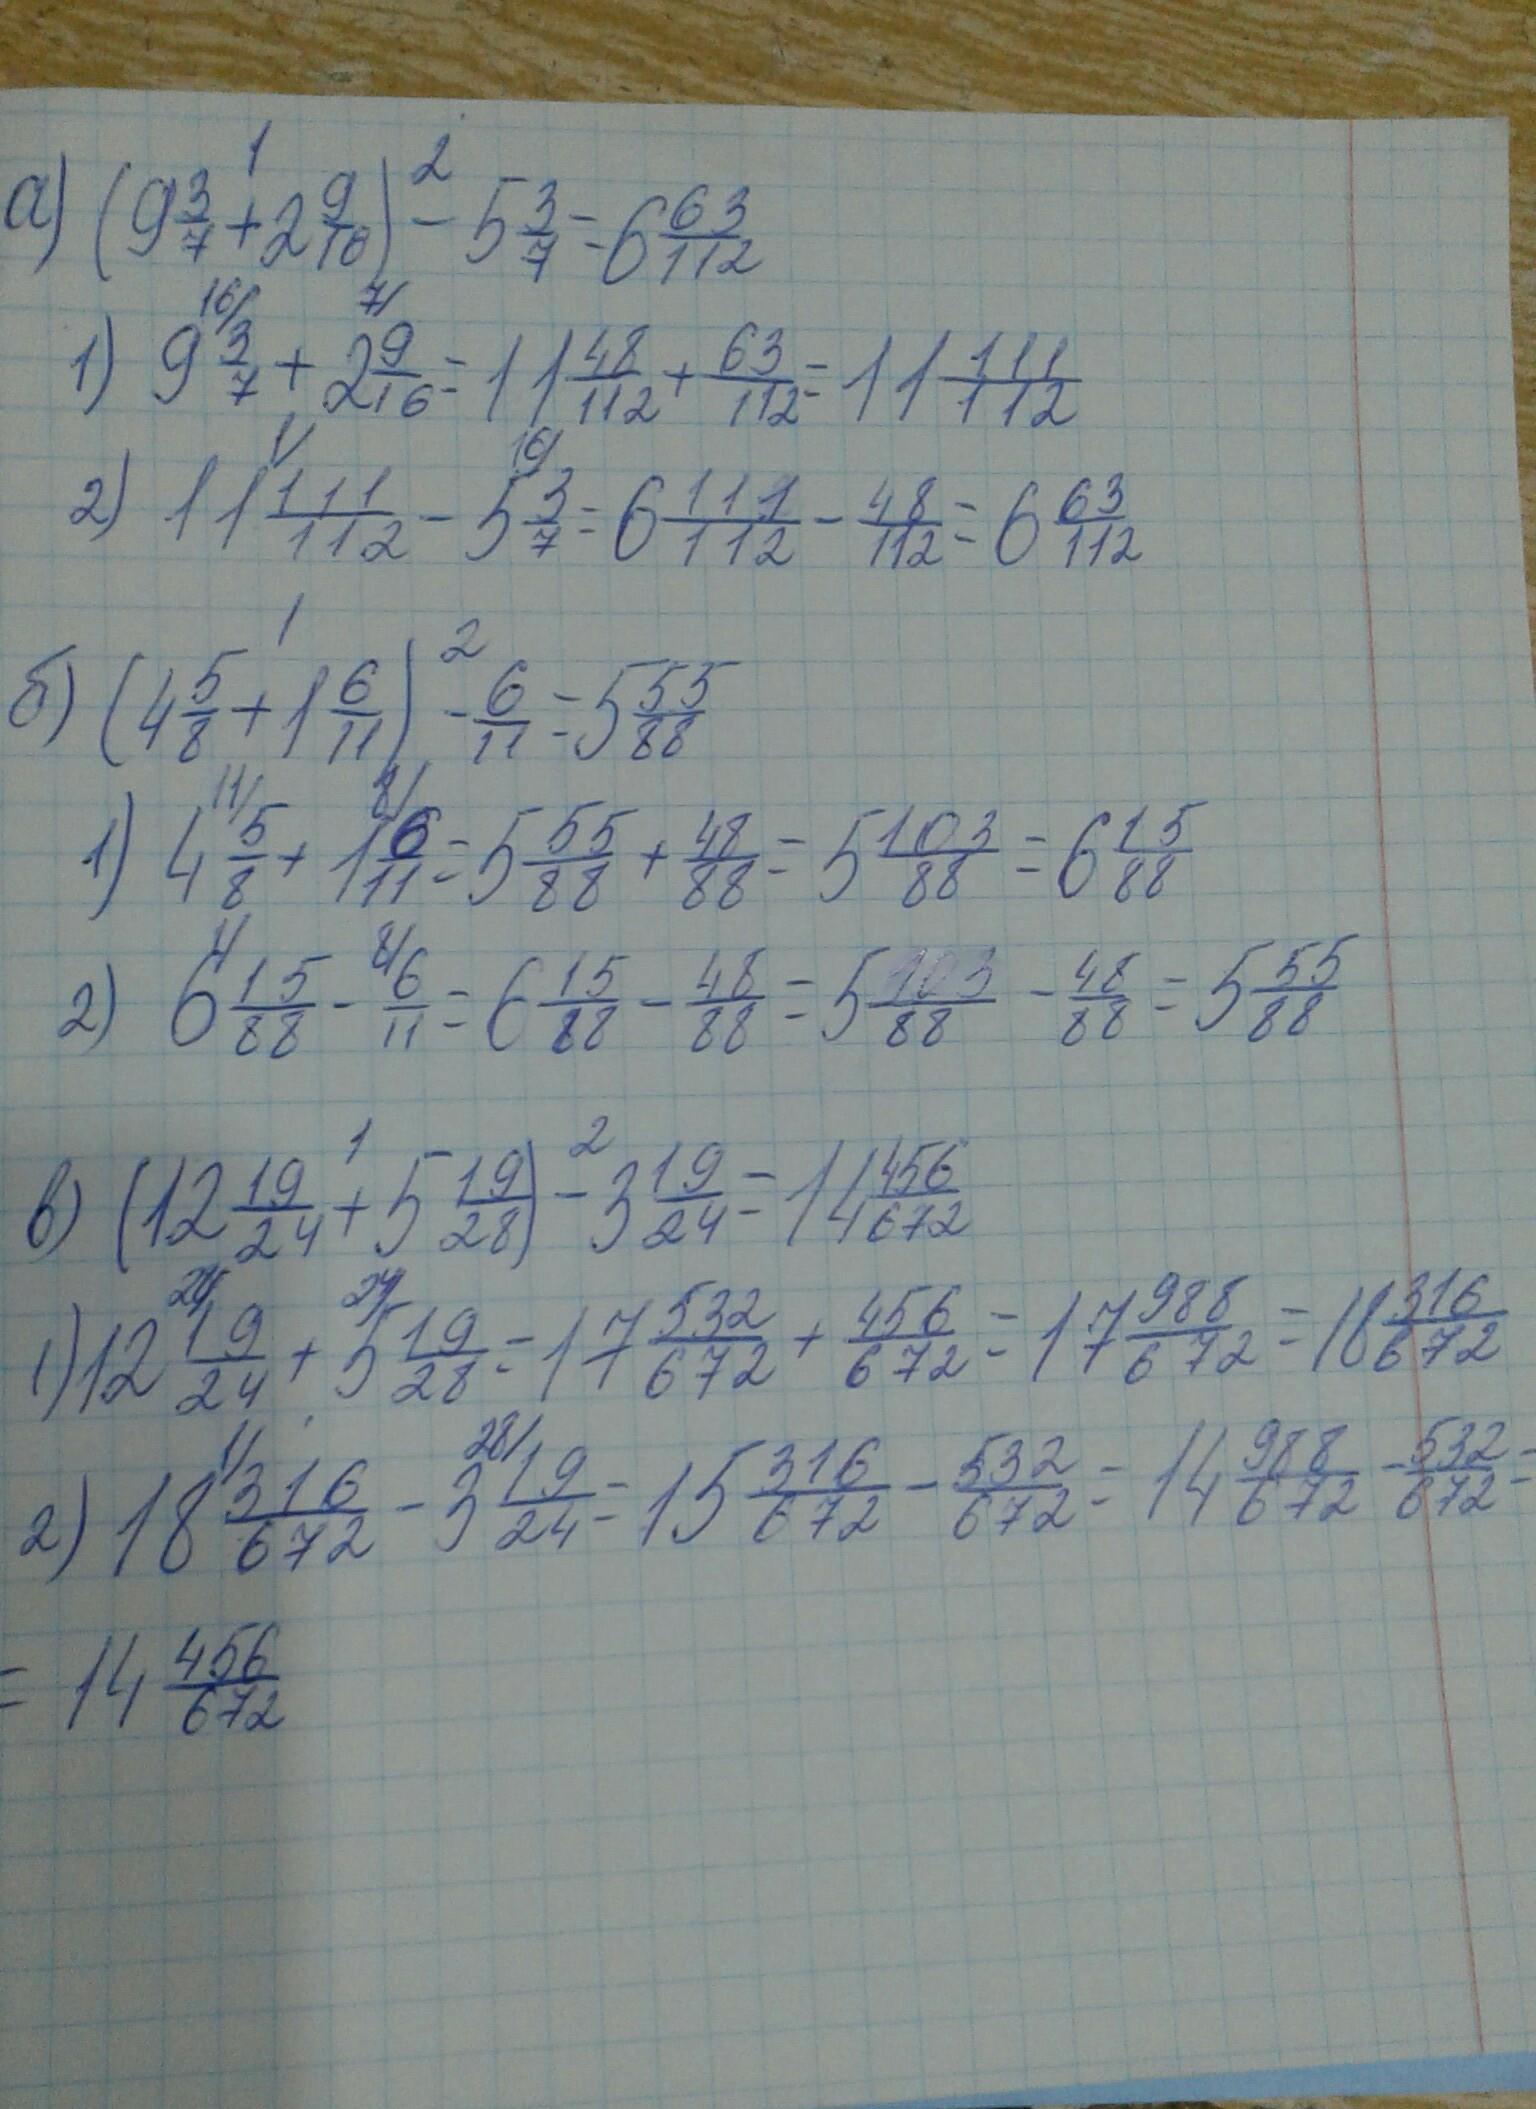 а) (9 3/7 + 2 9/16) - 5 3/7 = 6 63/112
1) 9 3/7 + 2 9/16 = 11 48/112 + 63/112 = 11 111/112
2) 11 111/112 - 5 3/7 = 6 111/112 - 48/112 = 6 63/112
б) (4 5/8 + 1 6/11) - 6/11 = 5 55/88
1) 4 5/8 + 1 6/11 = 5 55/88 + 48/88 = 5 103/88 = 6 15/88
2) 6 15/88 - 6/11 = 6 15/88 - 48/88 = 5 103/88 - 48/88 = 5 55/88
в) (12 19/24 + 5 19/28) - 3 19/24 = 14 456/672
1) 12 19/24 + 5 19/28 = 17 532/672 + 456/672 = 17 988/672 = 18 316/672
2) 18 316/672 - 3 19/24 = 15 316/672 - 532/672 = 14 988/672 - 532/672 =
= 14 456/672